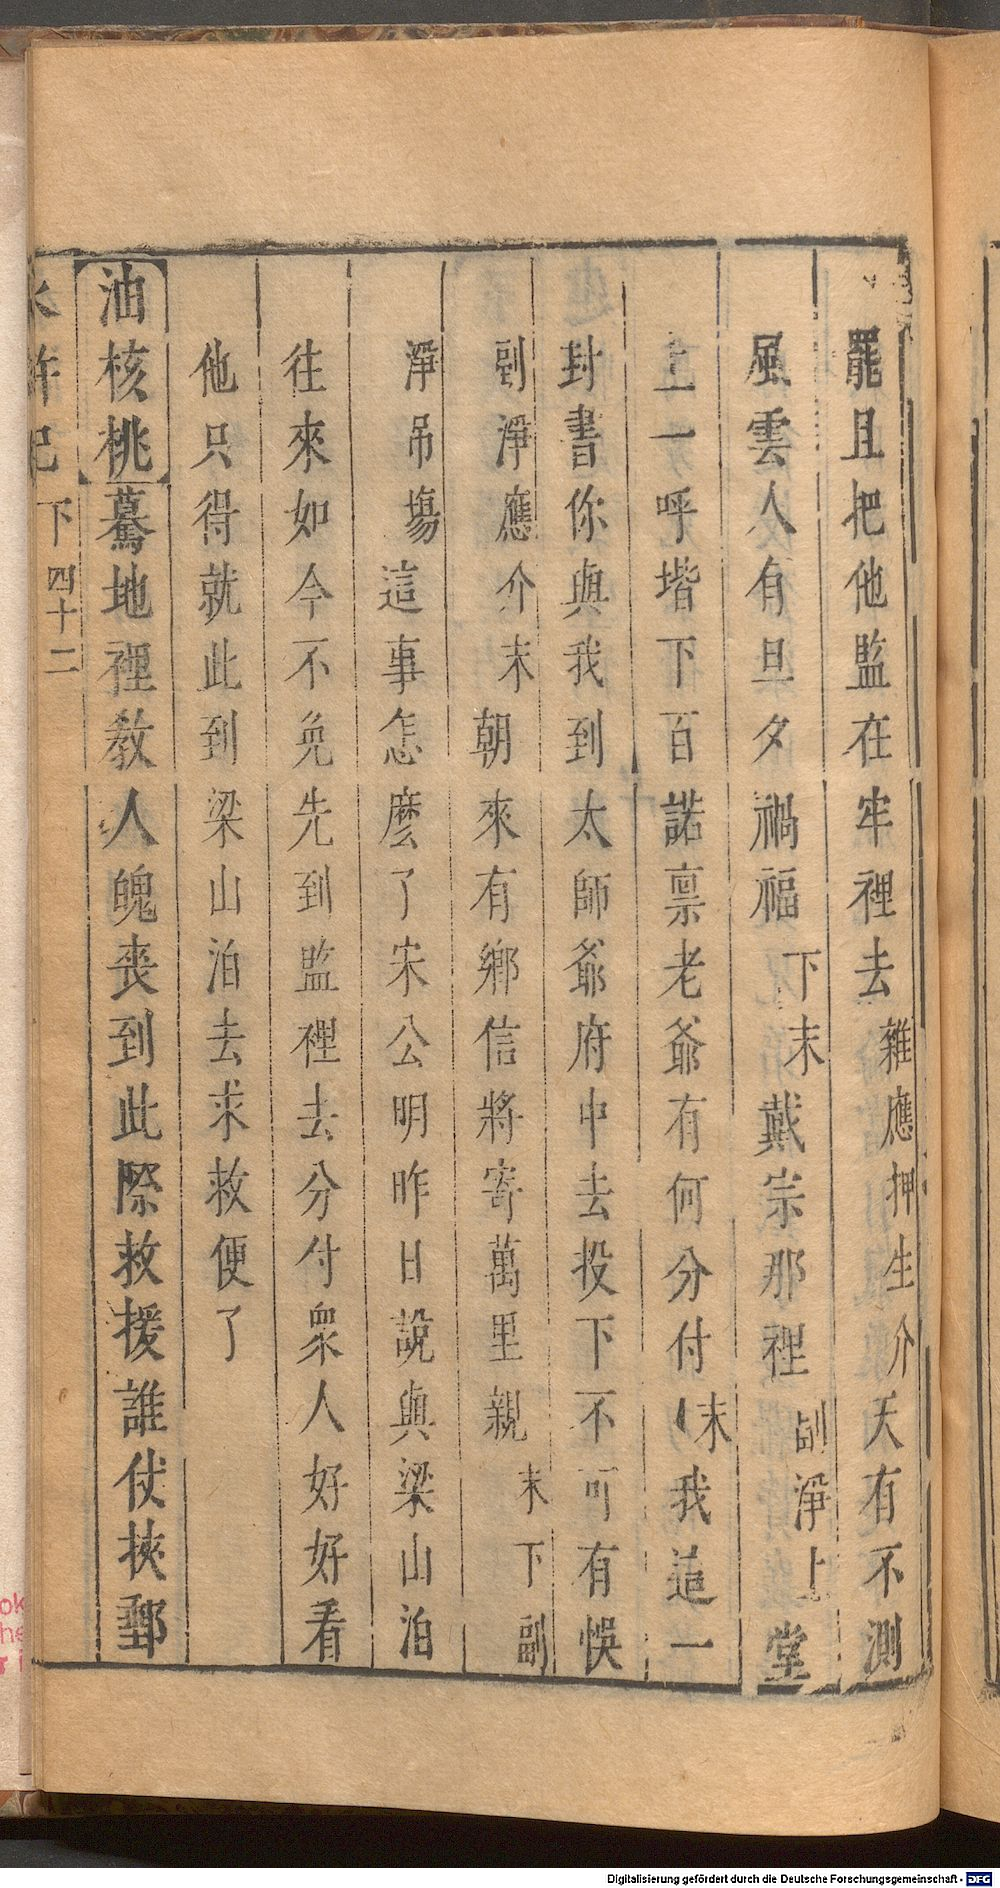 罷且把他監在牢裡去雜應押生介天有不測
風雲人有旦夕禍福下末戴宗那裡副淨上堂
上一呼堦下百諾禀老爺有何分付末我這一
封書你與我到太師爺府中去投下不可有悞
副淨應介末朝來有鄉信將寄萬里親末下副
淨吊場這事怎麽了宋公明昨日說與梁山泊
往來如今不免先到監裡去分付衆人好好看
他只得就此到梁山泊去求救便了
油核桃驀地裡教人魄喪到此際救援誰仗挾郵
水滸記 下 四十二
Digitalisierung gefördert durch die Deutsche Forschungsgemeinschaft - DFG